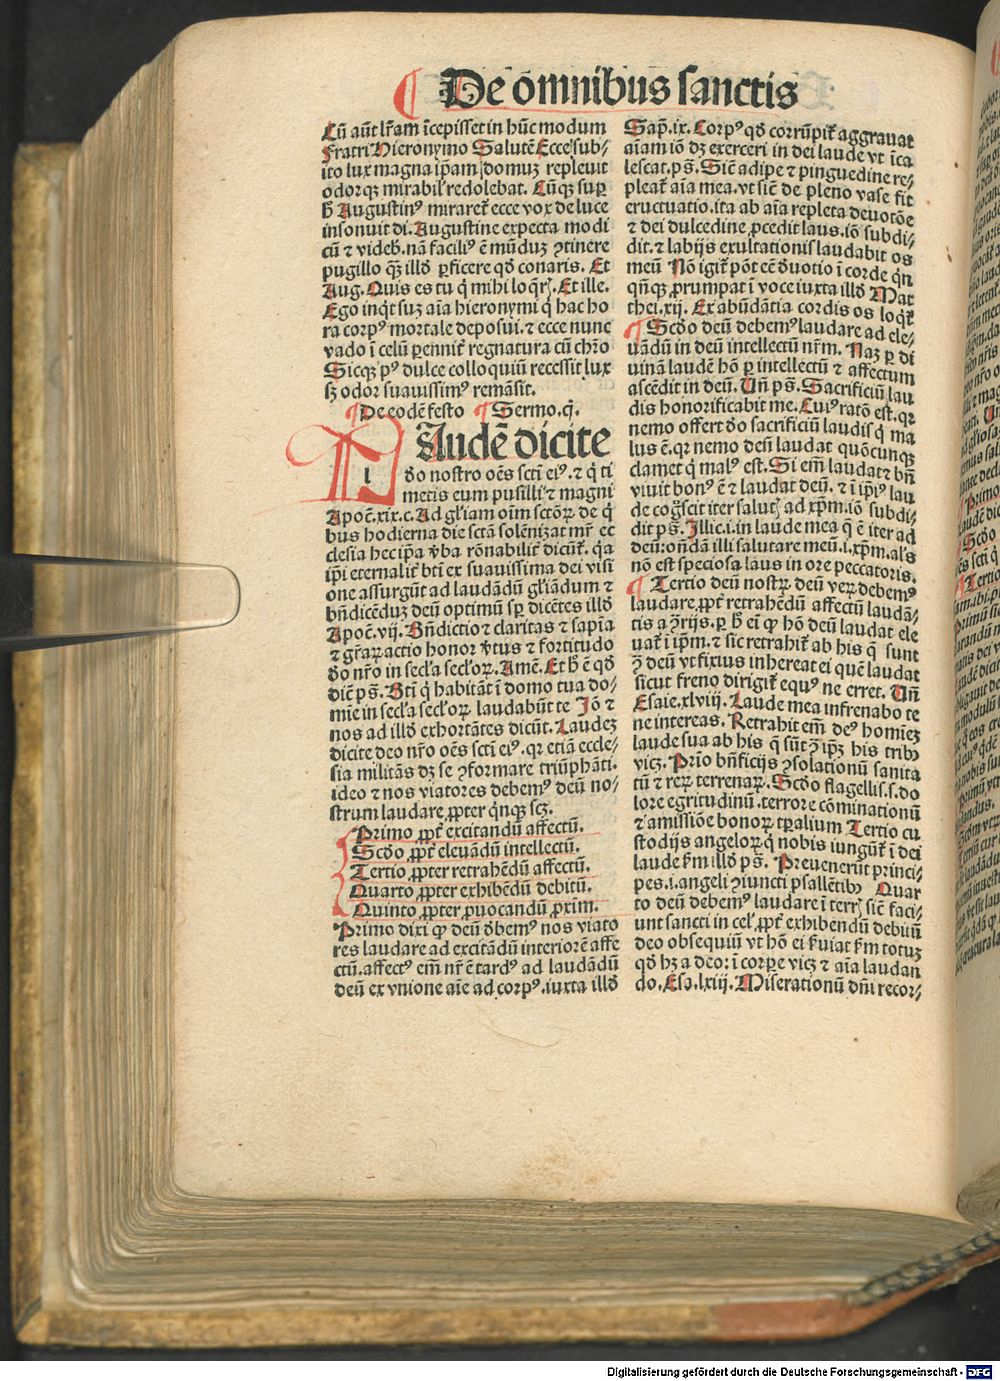 De om̄nibus sanctis
Cū aūt lr̄am īcepisset in hūc modum
Fratri Hieronymo Salutē Ecce sub/
ito lux magna ip̄am domuz repleuit
odorqꝫ mirabil' redolebat. Cūqꝫ suꝑ
ħ Augustin⁹ miraret̄ ecce vox de luce
insonuit di. Augustine expecta modi
cū ⁊ videb̄. nā facili⁹ ē mūduz ꝯtinere
pugillo qꝫ̄ illđ ꝑficere qđ conaris. Et
Aug. Quis es tu q̄ mihi loq̄rꝭ. Et ille.
Ego inq̄t suz aīa hieronymi q̄ hac ho
ra corp⁹ mortale deposui. ⁊ ecce nunc
vado ī celū ꝑennit̄ regnatura cū chr̄o
Sicqꝫ p⁹ dulce colloquiū recessit lux
sꝫ odor suauissim⁹ remāsit.
¶ De eodē festo ¶ Sermo.ij.
Audē dicite
l
đo nostro oēs sctī ei⁹. ⁊ q̄ ti
metis eum pusilli ⁊ magni
Apoc̄.xix.c. Ad gl̄iam oīm sctōꝝ de q̄
bus hodierna die sctā solēnizat mr̄ ec
clesia hec ip̄a v̄ba rōnabilit̄ dicūt̄. q̄a
ip̄i eternalit̄ btī ex suauissima dei visi
one assurgūt ad laudādū gl̄iādum ⁊
bn̄dicēduz deū optimū sꝑ dicētes illđ
Apoc̄.vij. Bn̄dictio ⁊ claritas ⁊ sapīa
⁊ gr̄aꝝ actio honor v̄tus ⁊ fortitudo
đo nr̄o in secl'a secl'oꝝ. Amē. Et ħ ē qđ
dic̄ pš. Btī q̄ habitāt ī domo tua do/
mīe in secl'a secl'oꝝ laudabūt te Iō ⁊
nos ad illđ exhortātes dicūt. Laudez
dicite deo nr̄o oēs sctī ei⁹. qꝛ etiā eccle/
sia militās dꝫ se ꝯformare triūphāti.
ideo ⁊ nos viatores debem⁹ deū no/
strum laudare ꝓpter q̄nqꝫ scꝫ.
Primo ꝓpt̄ excitandū affectū.
Scđo ꝓpt̄ eleuādū intellectū.
Tertio ꝓpter retrahēdū affectū.
Quarto ꝓpter exhibēdū debitū.
Quinto ꝓpter ꝓuocandū ꝓxīm.
Primo dixi ꝙ deū đbem⁹ nos viato
res laudare ad excitādū interiorē affe
ctū. affect⁹ em̄ nr̄ ē tard⁹ ad laudādū
deū ex vnione aīe ad corp⁹. iuxta illđ
Sap̄.ix. Corp⁹ qđ corrūpit̄ aggrauat
aīam iō dꝫ exerceri in dei laude vt īca
lescat. pš. Sic̄ adipe ⁊ pinguedine re/
pleat̄ aīa mea. vt sic̄ de pleno vase fit
eructuatio. ita ab aīa repleta deuotōe
⁊ dei dulcedine ꝓcedit laus. iō subdi/
dit. ⁊ labijs exultationis laudabit os
meū Nō igit̄ pōt eē đuotio ī corde q̄n
qn̄qꝫ ꝓrumpat ī voce iuxta illđ Mat
thei.xij. Ex abūdātia cordis os loqt̄
¶ Scđo deū debem⁹ laudare ad ele/
uādū in deū intellectū nr̄m. Naz ꝑ di
uinā laudē hō ꝑ intellectū ⁊ affectum
ascēdit in deū. Un̄ pš. Sacrificiū lau
dis honorificabit me. Cui⁹ ratō est. qꝛ
nemo offert đo sacrificiū laudis q̄ ma
lus ē. qꝛ nemo deū laudat quōcunqꝫ
clamet q̄ mal⁹ est. Si em̄ laudat ⁊ bn̄
viuit bon⁹ ē ⁊ laudat deū. ⁊ ī ip̄i⁹ lau
de coḡscit iter salutꝭ ad xp̄m. iō subdi/
dit pš. Illic.i. in laude mea q̄ ē iter ad
deū: on̄dā illi salutare meū.i.xp̄m. al's
nō est speciosa laus in ore peccatoris.
¶ Tertio deū nostꝝ deū veꝝ debem⁹
laudare, ꝓpt̄ retrahēdū affectū laudā/
tis a ꝯ̄rijs. ꝑ ħ eī ꝙ hō deū laudat ele
uat̄ ī ip̄m. ⁊ sic retrahit̄ ab his q̄ sunt
ꝯ̄ deū vt fixius inhereat ei quē laudat
sicut freno dirigit̄ equ⁹ ne erret. Un̄
Esaie.xlviij. Laude mea infrenabo te
ne intereas. Retrahit em̄ de⁹ homīez
laude sua ab his q̄ sūt ꝯ̄ ip̄ꝫ his tribꝫ
vicꝫ. Prīo bn̄ficijs ꝯsolationū sanita
tū ⁊ reꝝ terrenaꝝ. Scđo flagellis.s.do
lore egritudinū. terrore cōminationū
⁊ amissiōe bonoꝝ tꝑalium Tertio cu
stodijs angeloꝝ q̄ nobis iungūt̄ ī dei
laude ẜm illđ pš. Preuenerūt princi/
pes.i. angeli ꝯiuncti psallētibꝫ Quar
to deū debem⁹ laudare ī terrꝭ sic̄ faci/
unt sancti in cel', ꝓpt̄ exhibendū debitū
deo obsequiū vt hō ei ẜuiat ẜm totuz
qđ hꝫ a deo: ī corꝑe vicꝫ ⁊ aīa laudan
do. Esa.lxiij. Miserationū dn̄i recor/
Digitalisierung gefördert durch die Deutsche Forschungsgemeinschaft - DFG